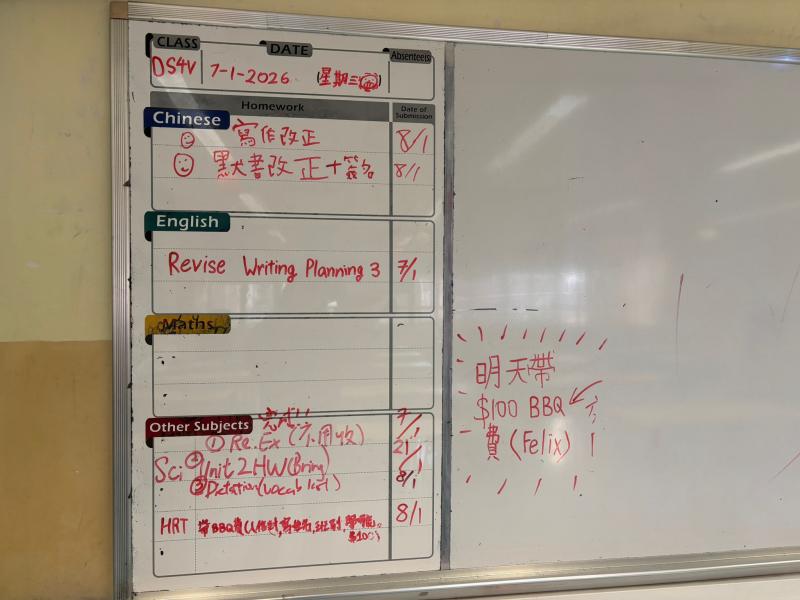 CLASS DATE Absentees
DS4V 7-1-2026 (星期三)
Homework Date of Submission
Chinese
寫作改正 8/1
默書改正+簽名 8/1
English
Revise Writing Planning 3 7/1
Maths
Other Subjects 完成!! 7/1
① Re.Ex (不用收)
Sci ② Unit 2 HW (Bring) 21/1
③ Dictation (vocab list) 8/1
HRT 帶BBQ費(以信封,寫姓名,班別,學號。 8/1
$100)
明天帶
$100 BBQ
費 (Felix)